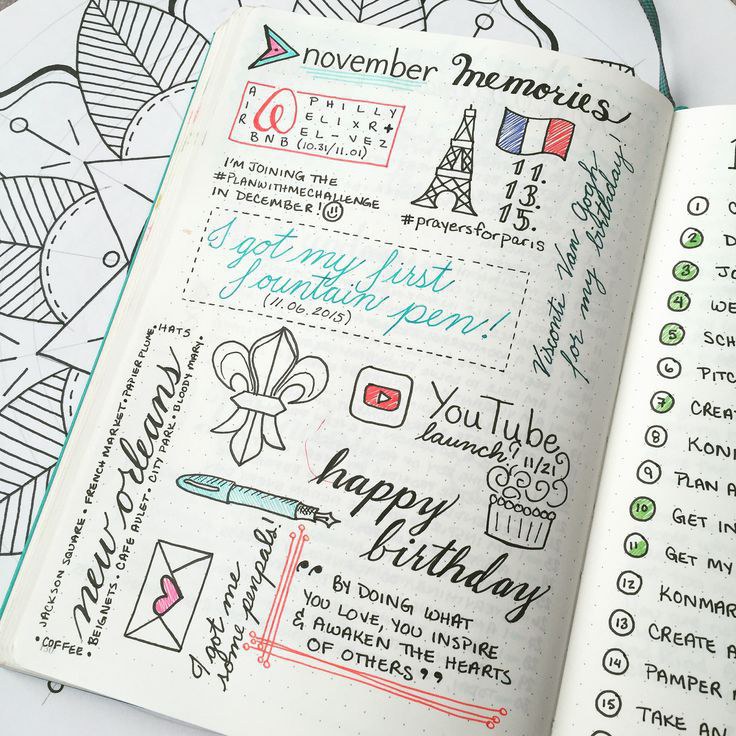 november Memories
AIR BNB
PHILLY
ELIXR +
EL-VEZ
(10.31/11.01)
I'M JOINING THE
#PLANWITHMECHALLENGE
IN DECEMBER!
11.
13.
15.
#prayersforparis
Visconti Van Gogh
for my birthday!
I got my first
fountain pen!
(11.06.2015)
YouTube
launch! 11/21
happy
birthday
new orleans
JACKSON SQUARE • FRENCH MARKET • PAPIER PLUME • HATS
• COFFEE • BEIGNETS • CAFE AULET • CITY PARK • BLOODY MARY •
I got me
some penpals!
“ BY DOING WHAT
YOU LOVE, YOU INSPIRE
& AWAKEN THE HEARTS
OF OTHERS ”
1
2
3
4 WE
5 SCH
6 PITC
7 CREA
8 KON
9 PLAN A
10 GET IN
11 GET MY
12 KONMAR
13 CREATE A
14 PAMPER
15 TAKE AN